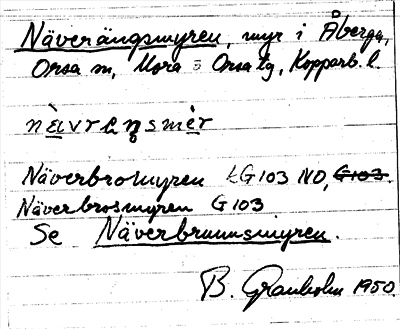 Näverängsmyren, myr i Åberga,
Orsa sn, Mora o Orsa tg, Kopparb. l.
Näverbromyren kG 103 NO, G103.
Näverbrosmyren G 103
Se Näverbrunnsmyren.
B. Granholm 1950.